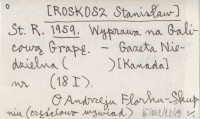 [ROSKOSZ Stanisław]
St. R. 1959. Wyprawa na Gali-
cową Grapę. - Gazeta Nie-
dzielna ( ) [Kanada]
nr (18 I).
O Andrzeju Florku-Skup-
niu (częściowo wywiad)